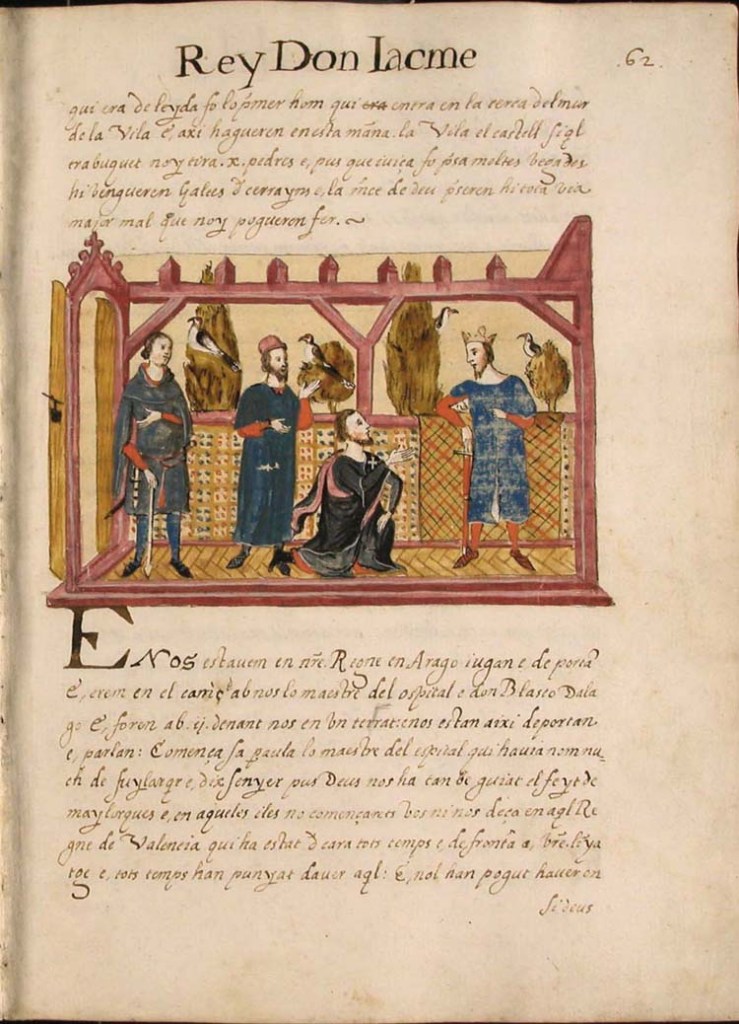 Rey Don Iacme
.62.
qui era de leyda fo lo pmer hom qui era entra en la cerca del mur
de la Vila e, axi hagueren en esta mana. la Vila el castell si ql
trabuquet noy tira .x. pedres e, pus que iuiça fo psa moltes vegades
hi vengueren Galees d cerrayns e, la mce de deu pseren hi tota via
major mal que noy pogueren fer. ~
ENos estavem en nre. Regne en Arago iugan e de portan
E, erem en el camp ab nos lo maestre del ospital e don Blasco Dala
go E, foren ab .ij. denant nos en un terrat: e nos estan aixi deportan
e, parlan: Comença sa paula lo maestre del espital qui havia nom nu
ch de fuylarqr e, dix senyer pus Deus nos ha tan be guiat el feyt de
maylorgues e, en aqueles iles no començarets vos ni nos deça en aql Re
gne de Valencia qui ha estat d cara tots temps e de fronta a, vre. liya
tge e, tots temps han punyat daver aql: E, nol han pogut haver en
si deus